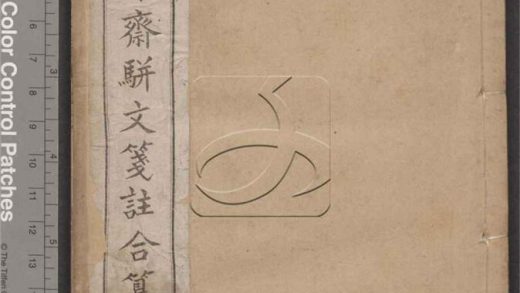 齋駢文箋註合算
Color Control Patches
© The Tiffen
6
7
8
9
10
11
12
13
3
4
5